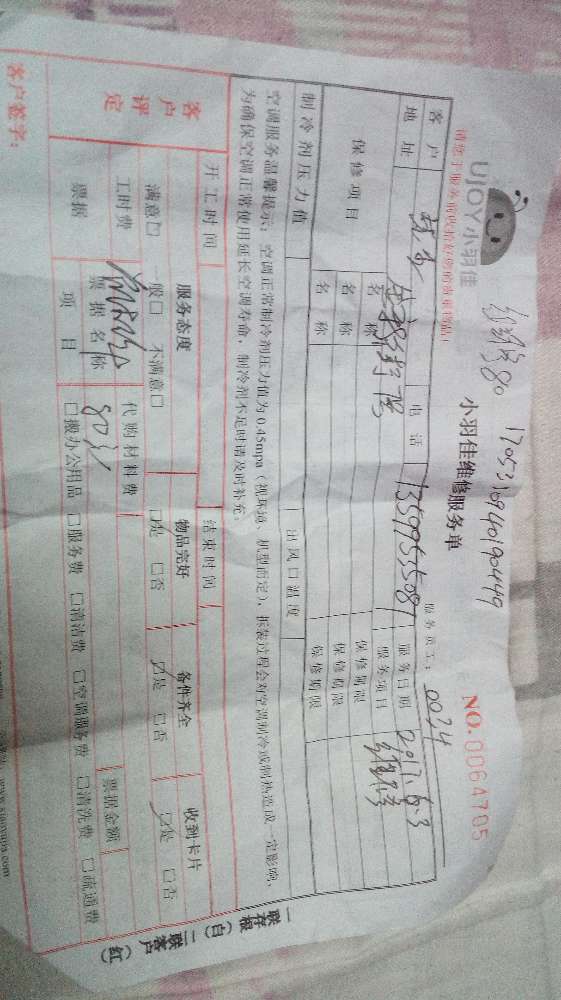 维修80 1705310940190449
UJOY小羽佳
小羽佳维修服务单
NO.0064705
服务员工：0034
客户
电话
13599535081
服务日期
2017.6.3
地址
服务项目
维修
保修项目
名称
保修期限
名称
保修期限
名称
保修期限
制冷剂压力值
出风口温度
空调服务温馨提示：空调正常制冷剂压力值为0.45mpa（视环境、机型而定），拆装过程会对空调制冷或制热造成一定影响，
为确保空调正常使用延长空调寿命，制冷剂不足时请及时补充。
开工时间
结束时间
客户评定
服务态度
物品完好
备件齐全
收到卡片
满意□ 一般□ 不满意□
□是 □否
☑是 □否
☑是 □否
工时费
代购材料费
票据金额
票据
票据名称
80元
项目
□搬办公用品 □服务费 □清洁费 □空调服务费 □清洗费 □疏通费
客户签字：
一联存根（白）二联客户（红）